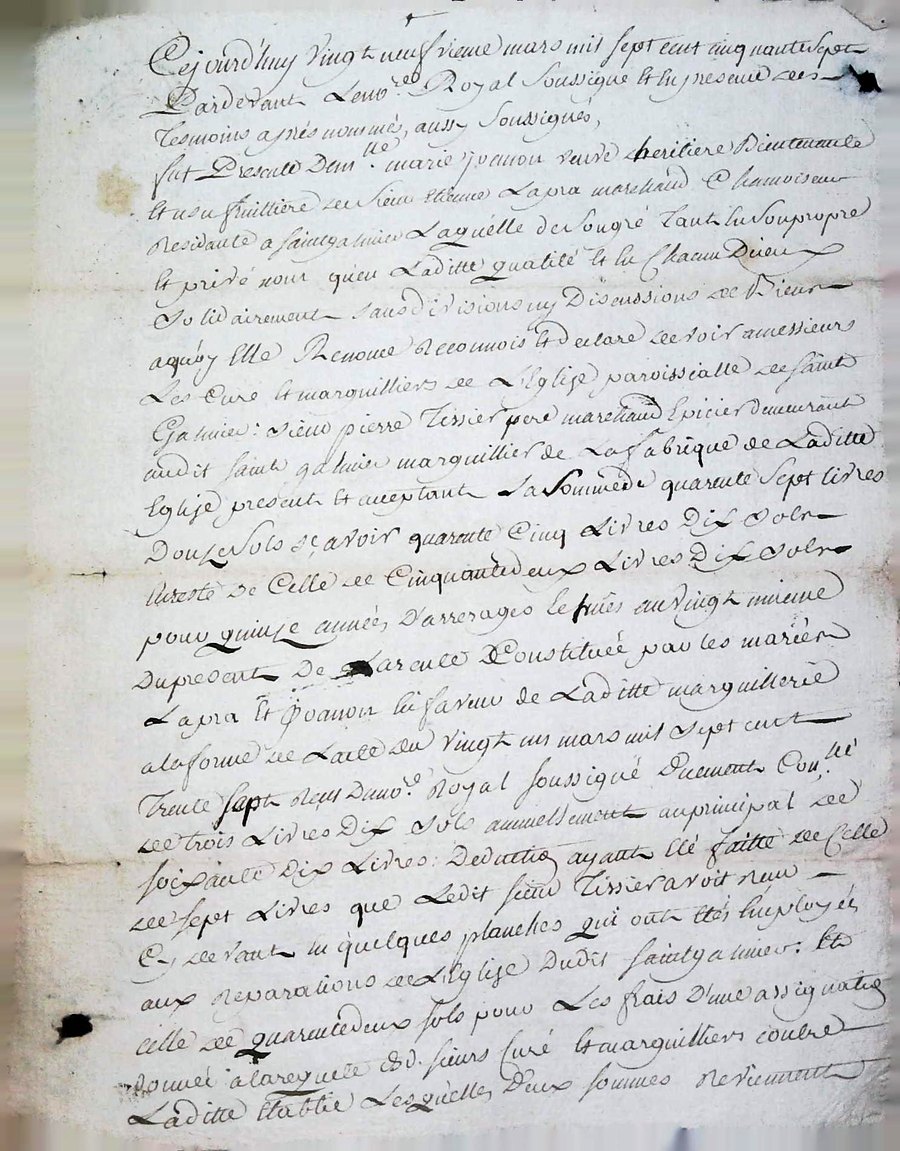 Cejourd'huy vingt neufvieme mars mil sept cent cinquante sept
Pardevant Le no.re Royal soussigné Et en presence des
Tesmoins apres nommés, aussy soussignés,
fut Presente Dem.lle marie joanon veuve heritiere Bientenente
Et usufruittiere de sieur Etienne Lapra marchand Chamoiseur
Residante a saintgalmier Laquelle de son gré Tant En son propre
Et privé nom qu'en Laditte qualité Et En Chacun D'iceux
solidairement sans divisions ny Discussions de Biens
aquoy Elle Renonce Reconnois Et declare devoir a messieurs
Les Curé Et marguilliers de L'Eglise paroissialle de saint
Galmier: sieur pierre Tissier pere marchand Epicier demeurant
audit saint galmier marguillier de La fabrique de Laditte
Eglise present Et acceptant La Somme de quarente sept livres
Douze sols sçavoir quarente Cinq Livres Dix sols
En reste de Celle de Cinquante deux Livres Dix sols
pour quinze années D'arrerages Echües au vingt unieme
Du present De La rente Constituée par les mariés
Lapra Et joanon En faveur de Laditte marguillerie
a la forme de L'acte du vingt un mars mil sept cent
Trente sept Receu Du no.re Royal soussigné Duement Con.llé
de trois Livres Dix sols annuellement au principal de
soixante Dix Livres: Deduction ayant Eté faitte de Celle
de sept Livres que Ledit sieur Tissier avoit Receu
Cy devant En quelques planches qui ont Etés Employés
aux Reparations de L'Eglise Dudit saintgalmier: Et
celle de quarente deux sols pour Les frais D'une assignation
Donnée a la requete sieurs Curé Et marguilliers contre
Laditte Etablie Lesquelles Deux sommes Reviennent